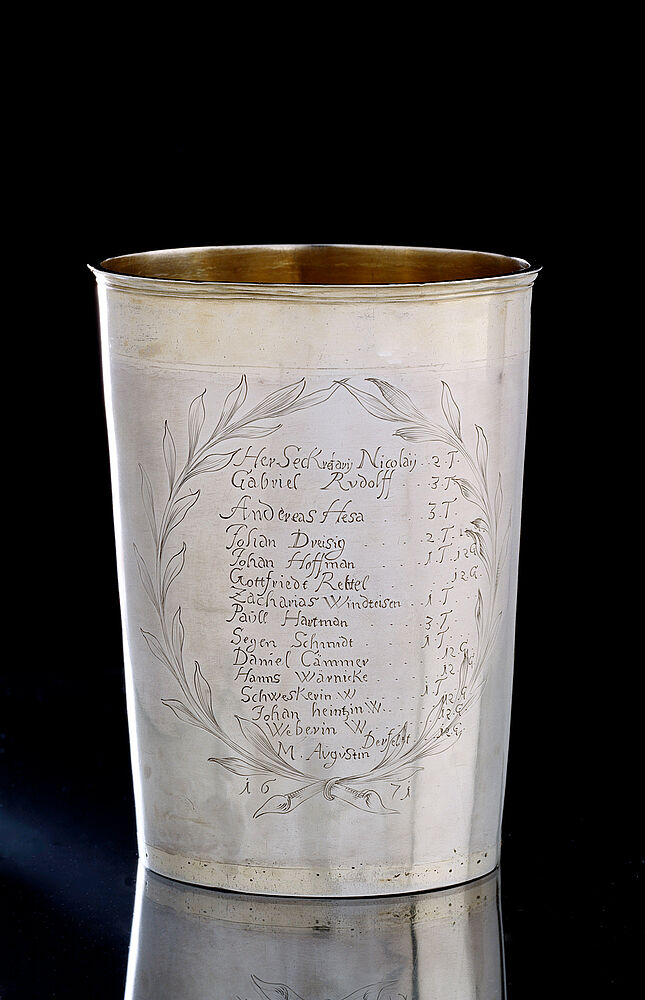 Her SecKretarij Nicolaij .. 2 T.
Gabriel Rvdolff .. 3 T.
Andereas Hesa 3 T.
Johan Dreisig . . . 2 T.
Johan Hoffman . . . 1 T. 12 G
Gottfriedt Rebtel . . . 12 G.
Zacharias Windteisen . . 1 T
Paŭll Hartman . . . 3 T.
Segen Schmidt . . . 1 T.
Daniel Cämmer . . . 12 G
Hanns Warnicke . . . 12 G
Schweskerin W . . . 1 T
Johan heintzin W. . . 12 G
Weberin W. . . 12 G.
M. Avgvstin
16 71